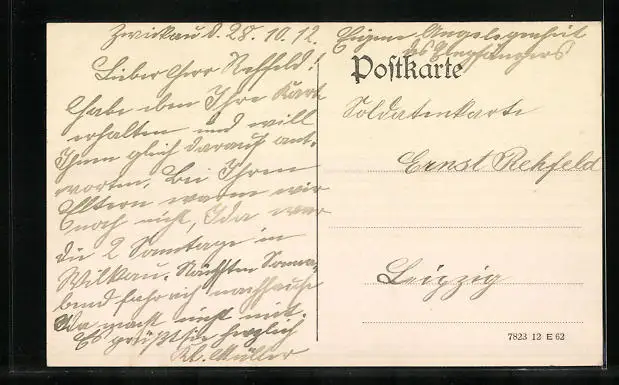 Zwickau d. 28. 10. 12.
Lieber Herr Rehfeld!
Habe eben Ihre Karte
erhalten und will
Ihnen glich darauf ant-
worten. Bei Ihren
Eltern waren wir
noch nicht, Ida war
die 2 Sonntage in
Wilkau. Nächsten Sonna-
bend fahr ich nachhause
Ida macht nicht mit.
Es grüßt Sie herzlich
Kl. Müller
Eigene Angelegenheit
des Empfängers
Postkarte
Soldatenkarte
Ernst Rehfeld
Leipzig
7823 12 E 62